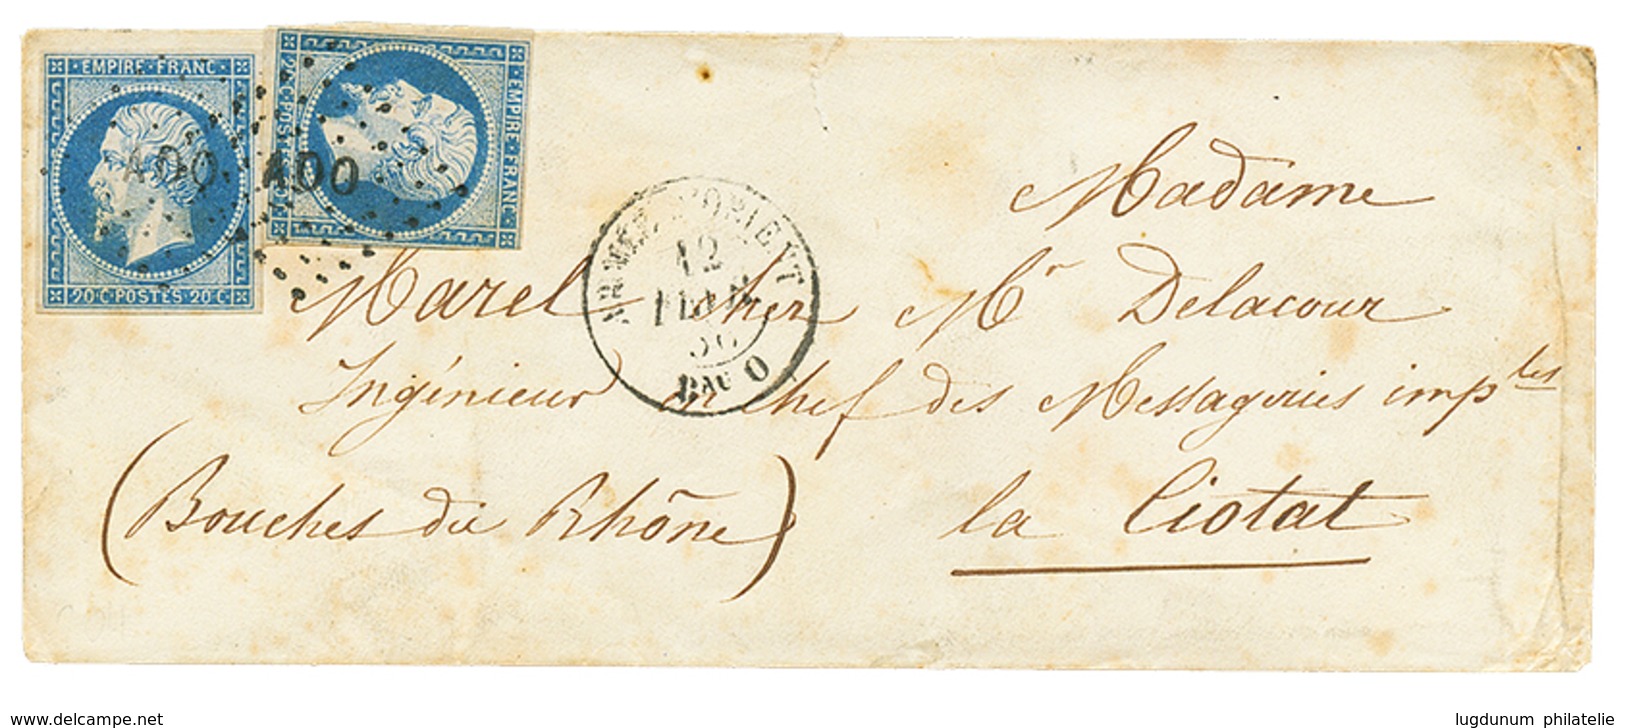 EMPIRE FRANC
20 C POSTES 20 C
EMPIRE FRANC
ADO
ADO
ARMÉE D'ORIENT
12
FEVR
56
BAU O
Madame
Marel chez Mr Delacour
Ingénieur en chef des Messageries imples
(Bouches du Rhône) la Ciotat
www.delcampe.net
lugdunum philatelie